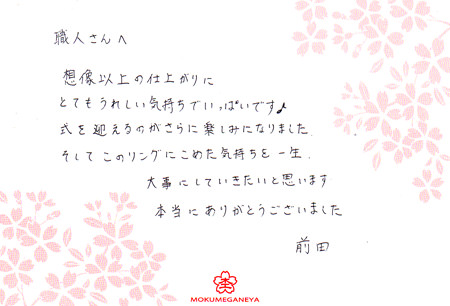 職人さんへ
想像以上の仕上がりに
とてもうれしい気持ちでいっぱいです♪
式を迎えるのがさらに楽しみになりました.
そしてこのリングにこめた気持ちを一生.
大事にしていきたいと思います
本当にありがとうございました
前田
MOKUMEGANEYA